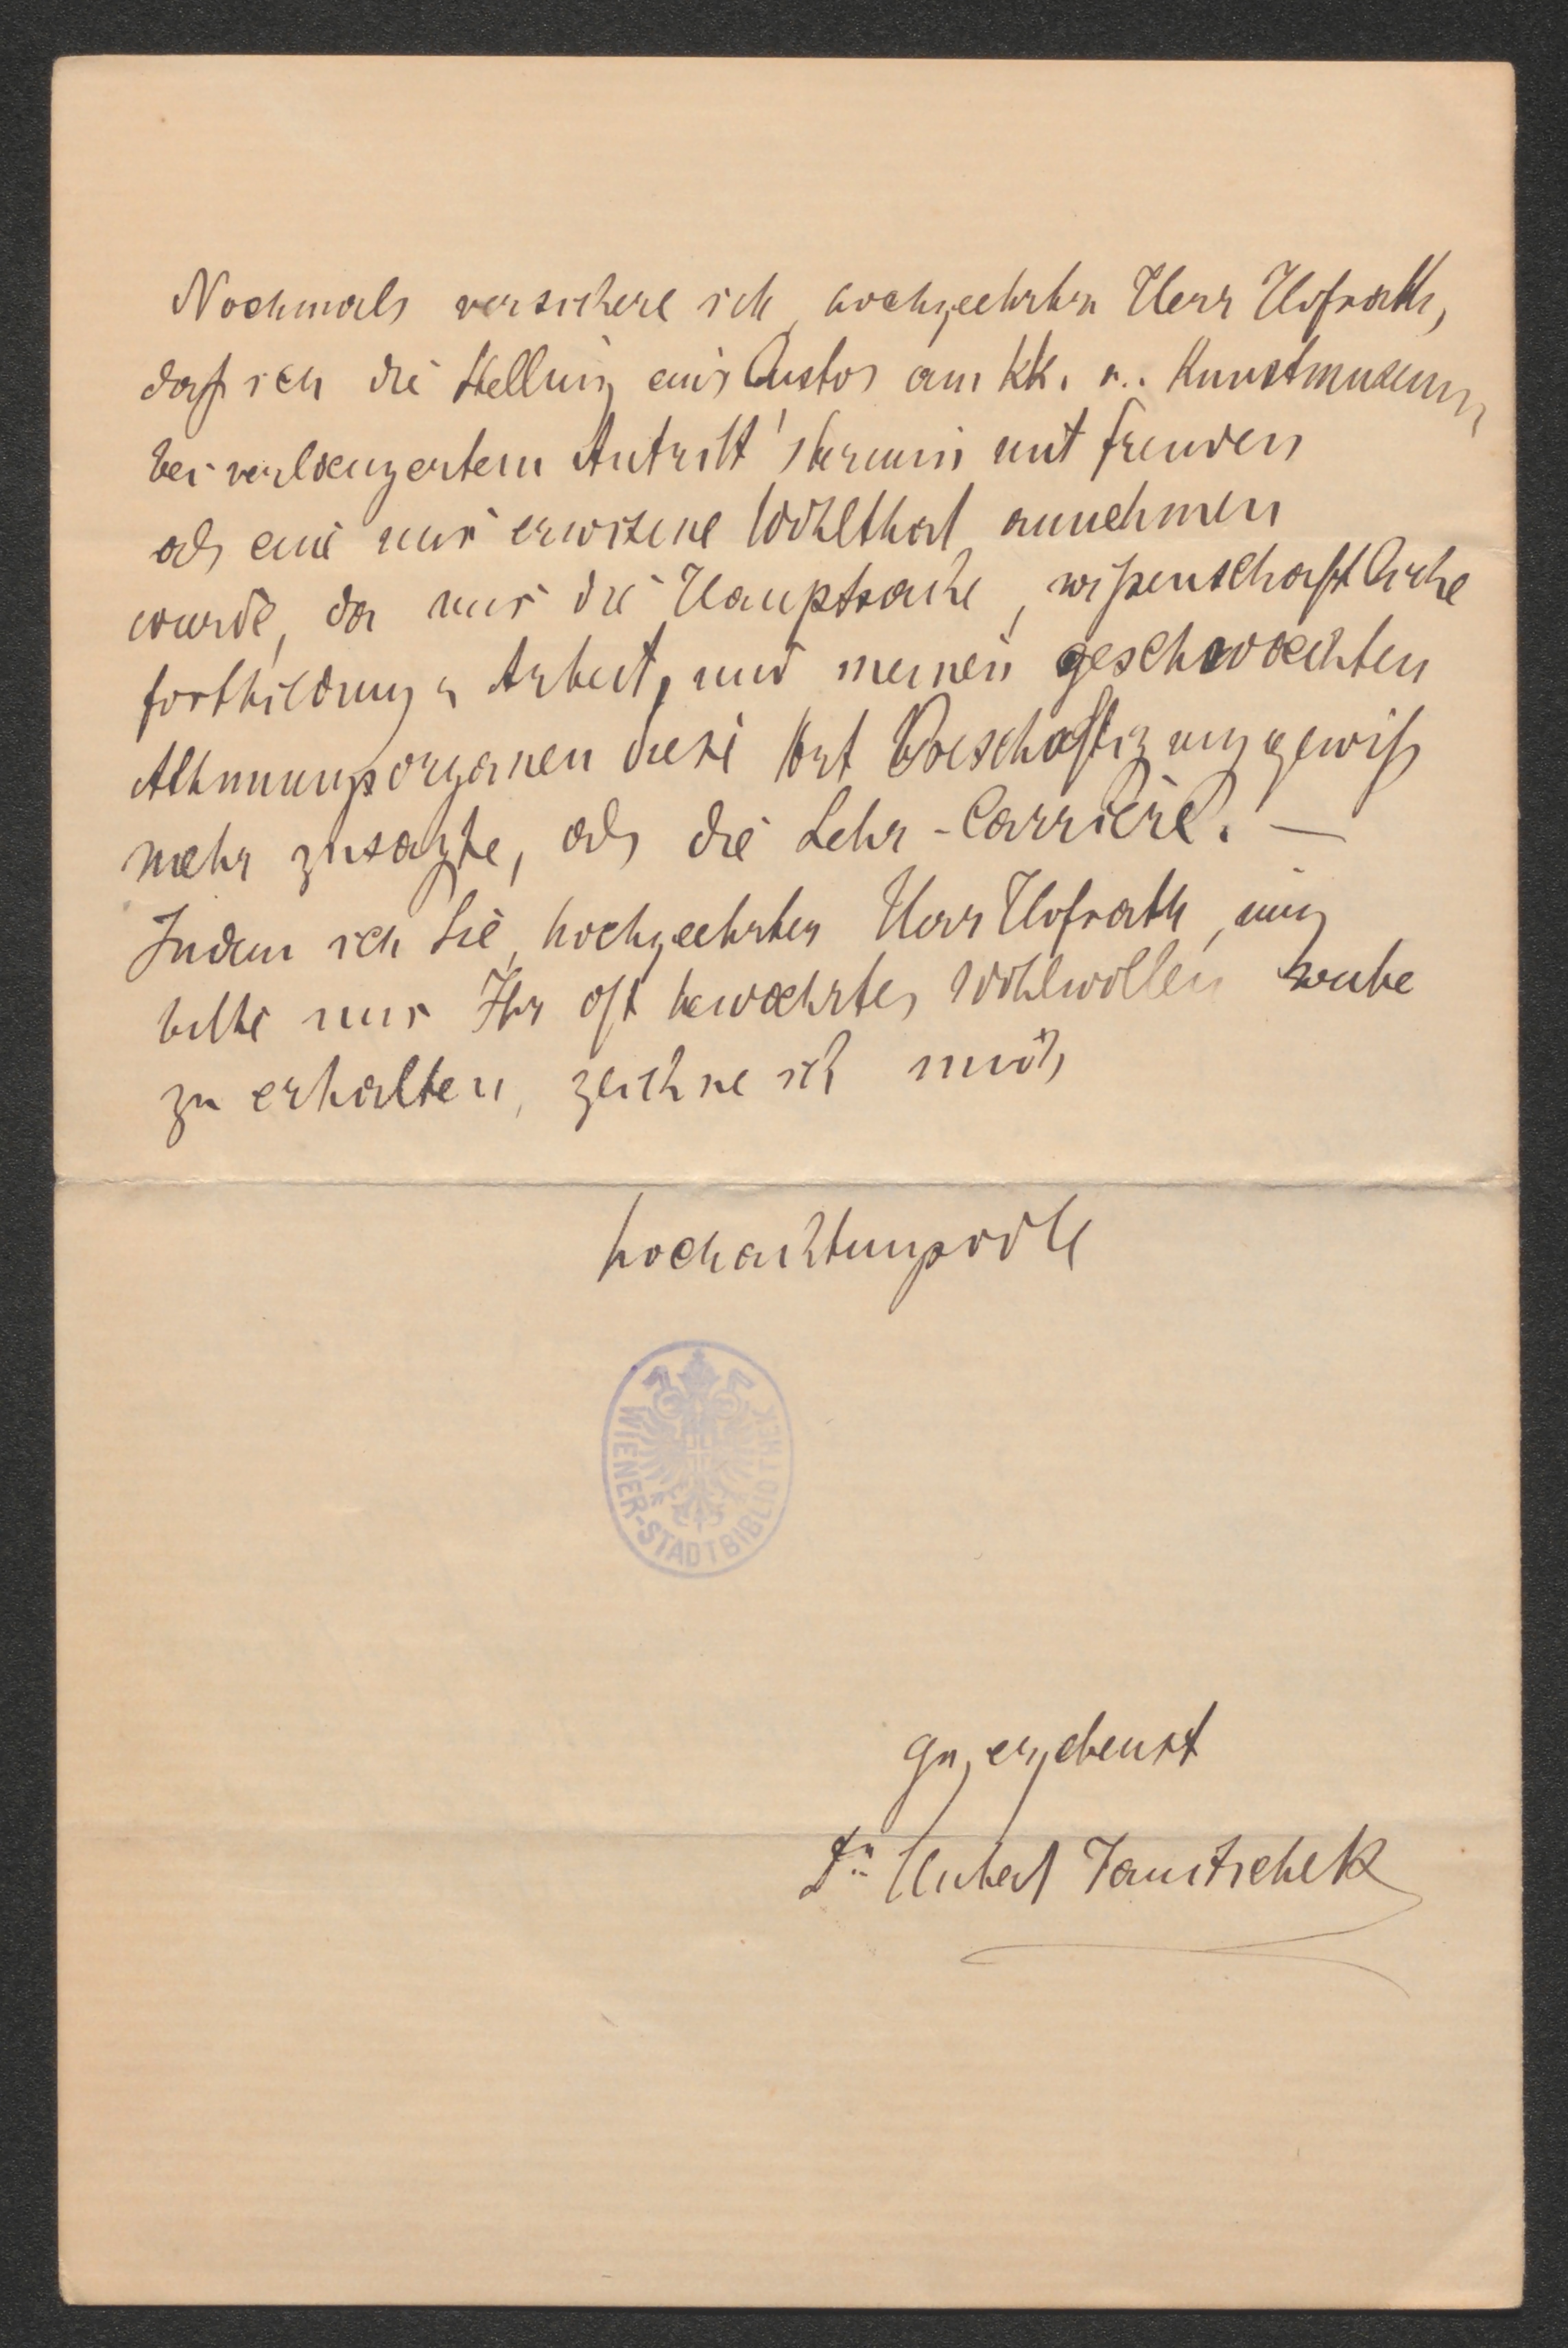 Nochmals versichere ich, hochgeehrter Herr Hofrath,
daß ich die Stellung eines Custos am kk. Kunstmuseum
bei verlaengertem Antritt'stermin mit Freuden
als eine mir erwisene Wohlthat annehmen
wurde, da mir die Hauptsache, wißenschaftliche
Fortbildung u Arbeit, und meinen geschwaechten
Athmungsorganen diese Art Baeschaftigung gewiß
mehr zusagte, als die Lehr-Carriere. —
Indem ich Sie, hochgeehrter Herr Hofrath,
bitte mir Ihr oft bewaehrtes Wohlwollen
zu erhalten, zeichne ich mich
hochachtungsvoll
WIENER-STADTBIBLIOTHEK
gz ergebenst
Dr Hubert Janitschek